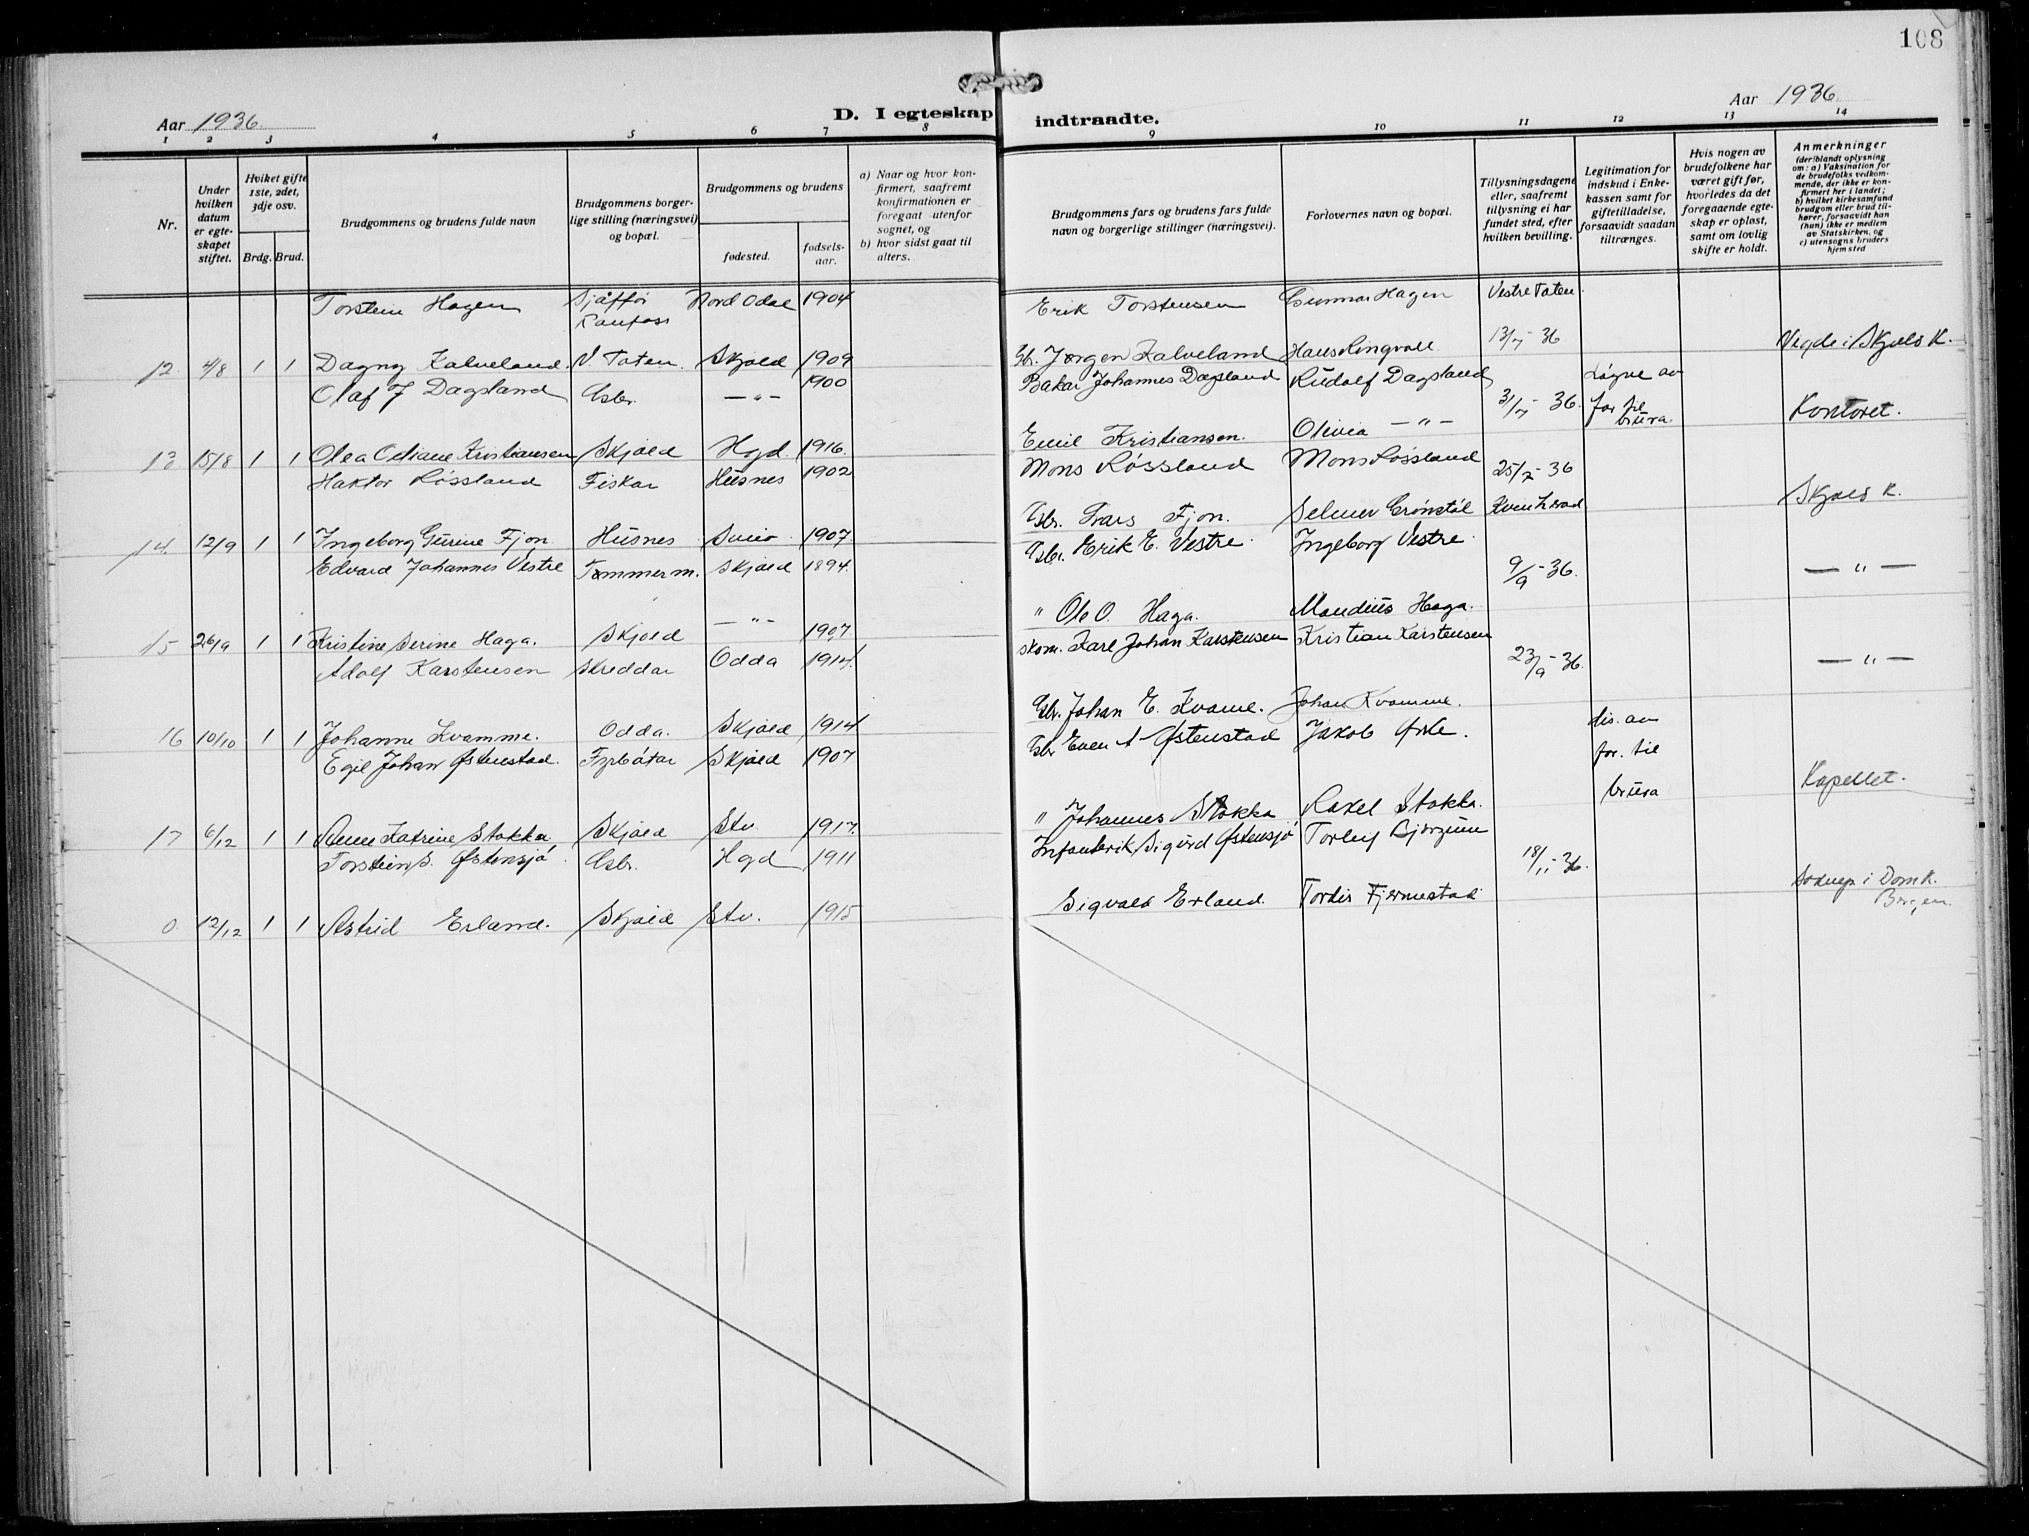 108
Aar 1936
D. I egteskap indtraadte.
Aar 1936
1 2 3 4 5 6 7 8 9 10 11 12 13 14
Nr.
Under hvilken datum er egteskapet stiftet.
Hviket gifte 1ste, 2det, 3dje osv.
Brdg. Brud.
Brudgommens og brudens fulde navn
Brudgommens borgerlige stilling (næringsvei) og bopæl.
Brudgommens og brudens
fødested.
fødselsaar.
a) Naar og hvor konfirmert, saafremt konfirmationen er foregaat utenfor sognet, og
b) hvor sidst gaat til alters.
Brudgommens fars og brudens fars fulde navn og borgerlige stillinger (næringsvei).
Forlovernes navn og bopæl.
Tillysningsdagene eller, saafremt tillysning ei har fundet sted, efter hvilken bevilling.
Legitimation for indskud i Enkekassen samt for giftetilladelse, forsaavidt saadan tiltrænges.
Hvis nogen av brudefolkene har været gift før, hvorledes da det foregaaende egteskap er opløst, samt om lovlig skifte er holdt.
Anmerkninger
(deriblandt oplysning om: a) Vaksination for de brudefolks vedkommende, der ikke er konfirmert her i landet; b) hvilket kirkesamfund brudgom eller brud tilhører, forsaavidt han (hun) ikke er medlem av Statskirken, og c) utensogns bruders hjemsted
Torstein Hagen Sjåffør Nord Odal 1904 Erik Torstensen Gunnar Hagen Vestre Toten
Raufoss
12 4/8 1 1 Dagny Kalveland V. Toten. Skjold 1909 Gbr. Jørgen Kalveland Hans Ringvall 13/7 36 Vigde i Skjolds K.
Olaf J Dagsland Gbr. — " — 1900 Bakar Johannes Dagsland Rudolf Dagsland Løyve av
13 15/8 1 1 Olea Otliane Kristiansen Skjold Hgd. 1916. Emil Kristiansen. Olivia — " — 31/7 - 36. far til brura. Kontoret.
Haktor Røssland Fiskar Husnes 1902 Mons Røssland Mons Røssland 25/7 - 36
14 12/9 1 1 Ingeborg Gurine Fjon Husnes Sveio 1907 Gbr. Lars Fjon. Selmer Grønstøl Kvinherad Skjolds K.
Edvard Johannes Vestre Tømmerm. Skjold 1894. Gbr. Erik E. Vestre. Ingeborg Vestre.
15 26/9 1 1 Kristine Serine Haga. Skjold — " — 1907. " Ole O. Haga. Mandius Haga. 9/9 - 36. — " —
Adolf Karstensen Skreddar Odda 1914. skom. Karl Johan Karstensen Kristian Karstensen
16 10/10 1 1 Johanne Kvamme. Odda. Skjold 1914 Gbr. Johan E. Kvame. Johan Kvamme. 23/9 - 36. — " —
Egil Johan Østenstad. Fyrbøtar Skjold 1907 Gbr Even A Østenstad Jakob Ørke. lis. av
17 6/12 1 1 Anne Katrine Stakka Skjold Stv. 1917. " Johannes Stakka Rakel Stakka. far til brura Kapellet.
Torstein S. Østensjø. Gbr. Hgd 1911 Infanterik. Sigurd Østensjø Torleif
0 12/12 1 1 Astrid Erland. Skjold Stv. 1915 Sigvald Erland. Tordis Fjermestad 18/11 - 36. i Domk. Bergen.